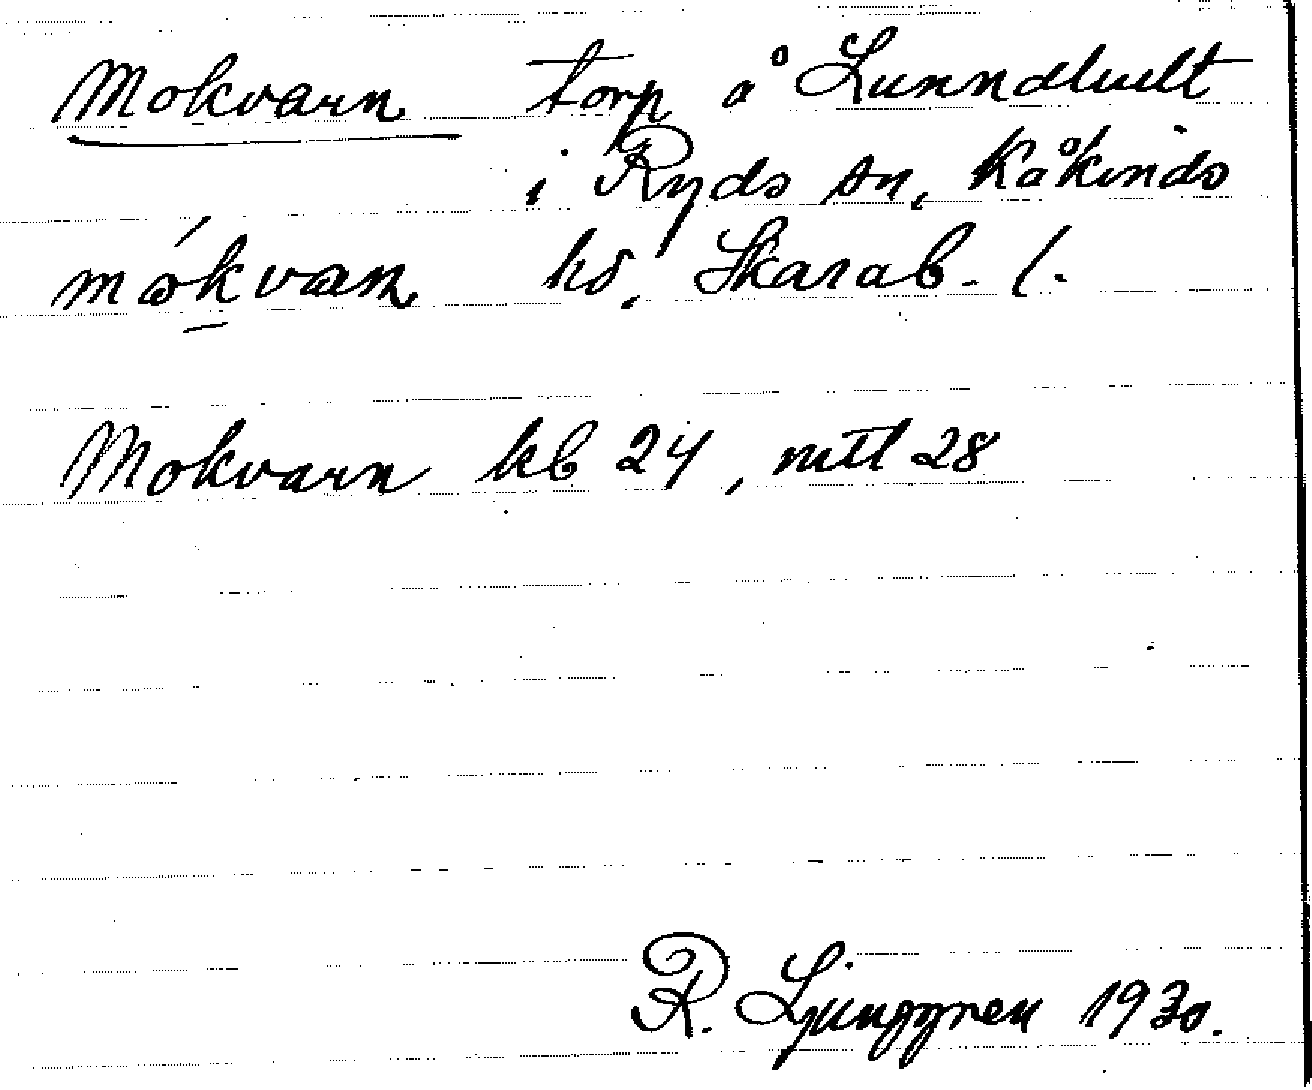 Mokvarn torp å Lunndtuelt
i Ryds sn, Kåkinds
mókvan hd, Skarab. l.
Mokvarn kb 24, mtl 28
R. Ljunggren 1930.